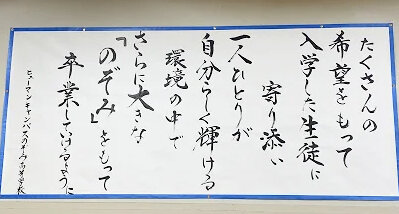 たくさんの
希望をもって
入学した生徒に
寄り添い
一人ひとりが
自分らしく輝ける
環境の中で
さらに大きな
「のぞみ」をもって
卒業していけるように
ヒューマンキャンパスのぞみ高等学校